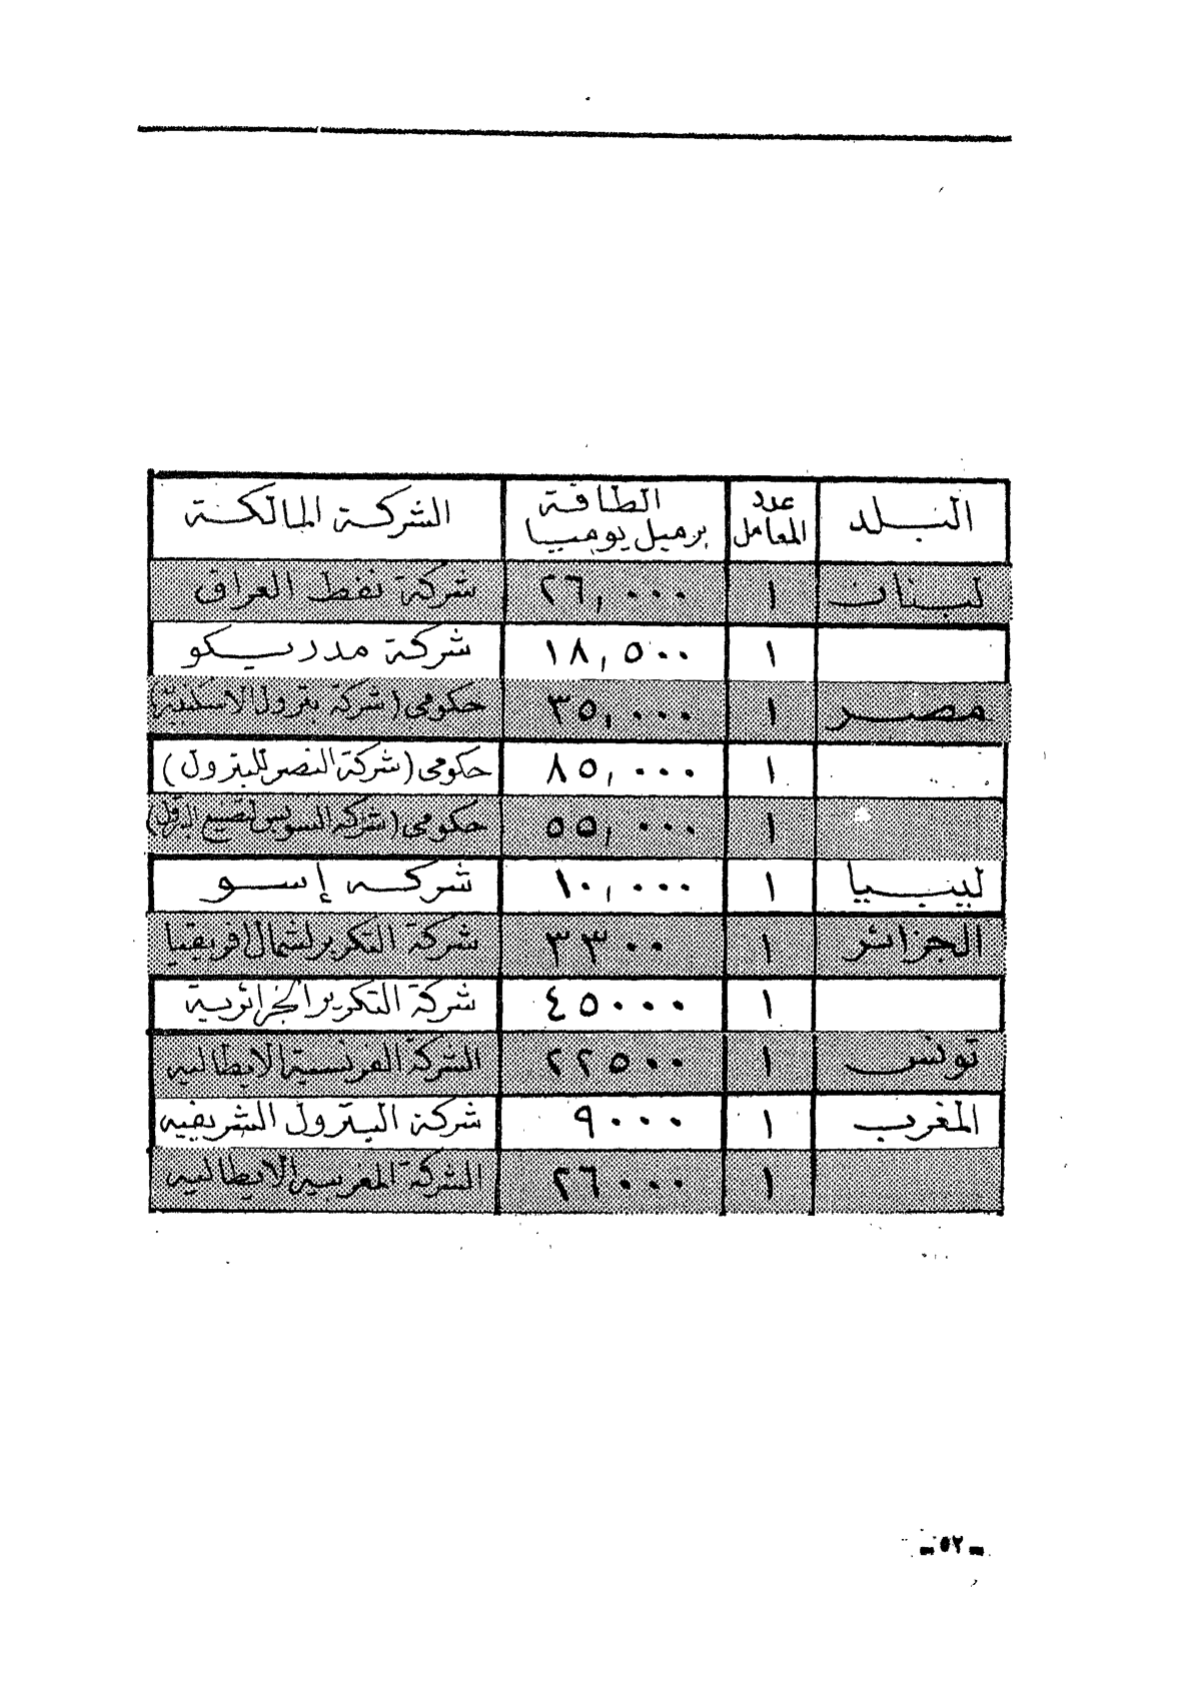 البلد عدد المعامل الطاقة برميل يوميا الشركة المالكة
لبنان ١ ٢٦,٠٠٠ شركة نفط العراق
١ ١٨,٥٠٠ شركة مدريكو
مصر ١ ٣٥,٠٠٠ حكومى (شركة بترول الاسكندرية)
١ ٨٥,٠٠٠ حكومى (شركة النصر للبترول)
١ ٥٥,٠٠٠ حكومى (شركة السويس لتصنيع البترول)
ليبيا ١ ١٠,٠٠٠ شركه إسو
الجزائر ١ ٣٣٠٠ شركة التكرير لشمال افريقيا
١ ٤٥٠٠٠ شركة التكرير الجزائرية
تونس ١ ٢٢٥٠٠ الشركة الفرنسية الايطاليه
المغرب ١ ٩٠٠٠ شركة البترول الشريفيه
١ ٢٦٠٠٠ الشركة المغربيه الايطاليه
ـ ٥٢ ـ